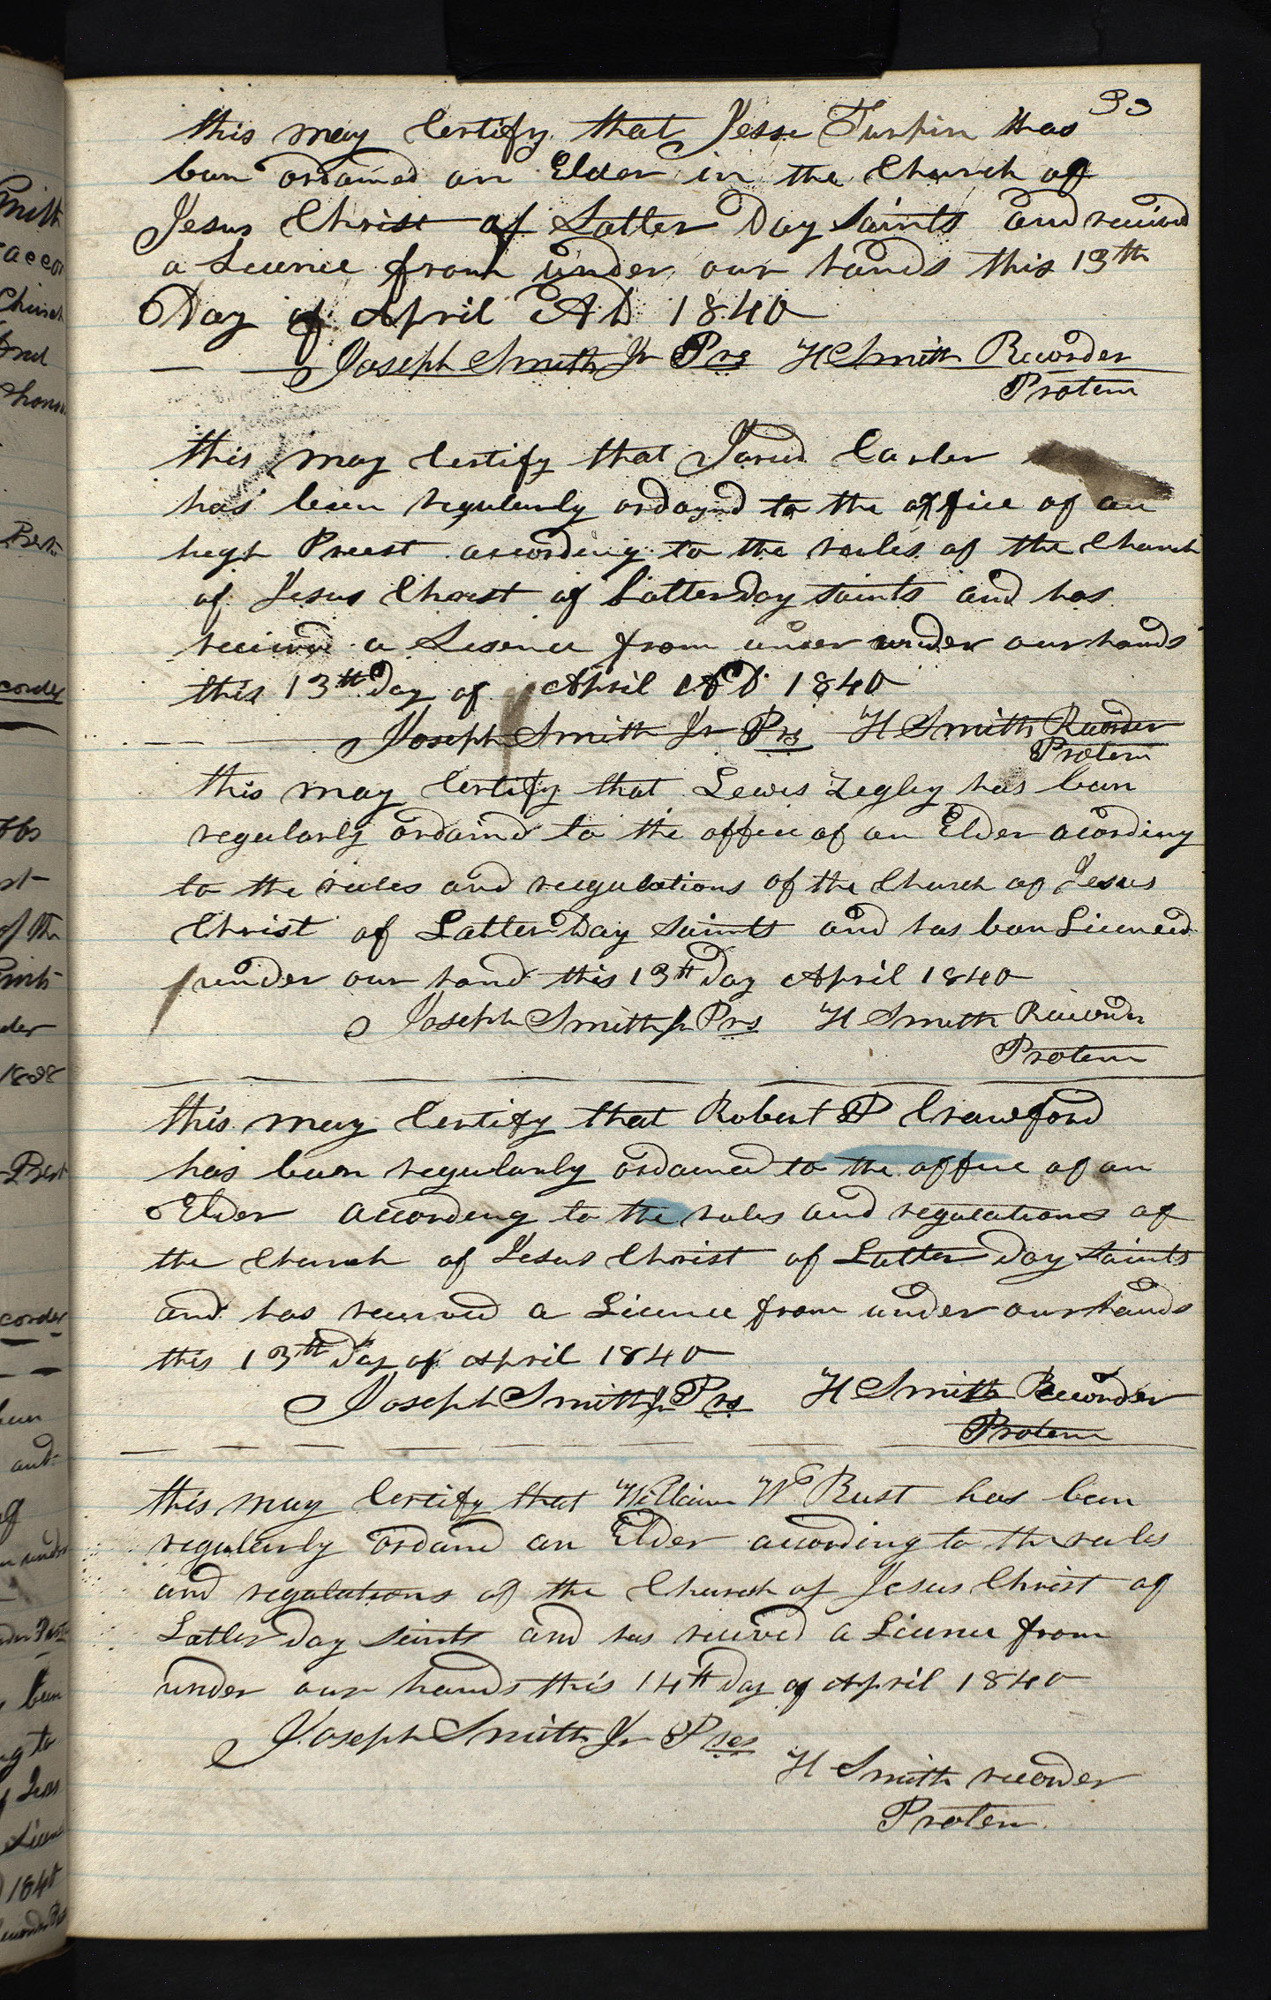 33
this may Certify that Jesse Turpin Has
ben ordained an Elder in the Church of
Jesus Christ of Latter Day Saints and receivd
a Licence from under our hands this 13th
Day of April AD 1840
Joseph Smith Jr Prs H Smith Recorder
Protem
this may Certify that Jared Carter
has been regularly ordaynd to the office of an
high Preest according to the rules of the Church
of Jesus Christ of Latter Day Saints and has
recivd a Lisence from under under our hands
this 13th Day of April AD 1840
Joseph Smith Jr Prs H Smith Recorder
Protem
this may Certify that Lewis Zegley has ben
regularly ordaind to the office of an Elder acording
to the rules and reegulations of the Church of Jesus
Christ of Latter Day Saints and has ben Licenced
under our hand this 13th Day April 1840
Joseph Smith Jr Prs H Smith Recorder
Protem
this may Certify that Robert P Crawford
has been regularly ordained to the office of an
Elder according to the rules and regulations of
the Church of Jesus Christ of Latter Day Saints
and has received a Licence from under our hands
this 13th Day of April 1840
Joseph Smith Jr Prs H Smith Recorder
Protem
this may Certify that William W Rust has ben
regularly ordand an Elder acording to the rules
and regulations of the Church of Jesus Christ of
Latter Day Saints and has recived a Licence from
under our hands this 14th Day of April 1840
Joseph Smith Jr Pres
H Smith recorder
Protem